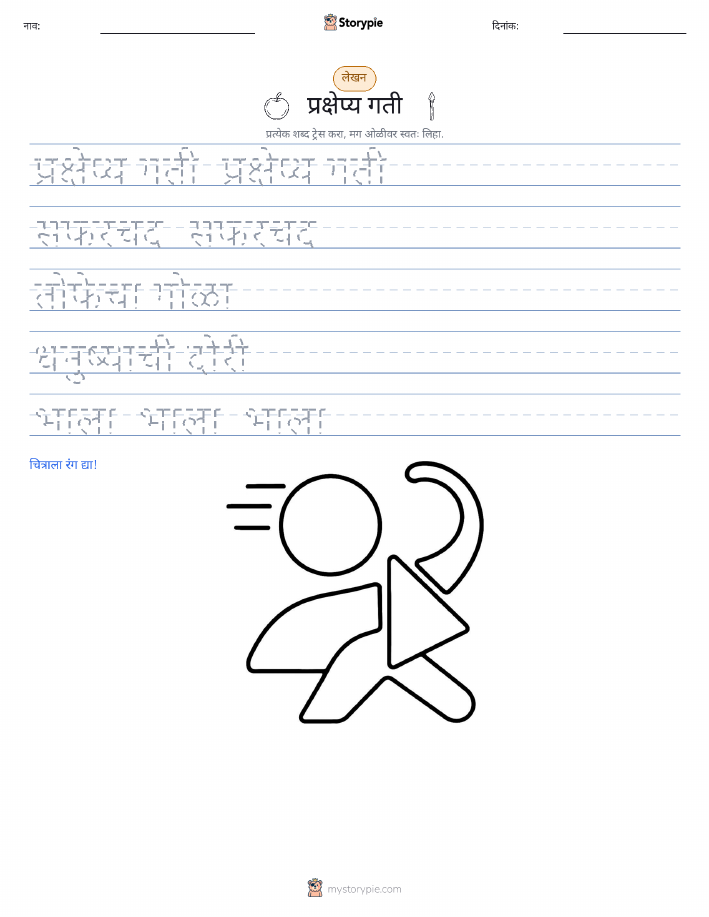 नाव:
Storypie
दिनांक:
लेखन
प्रक्षेप्य गती
प्रत्येक शब्द ट्रेस करा, मग ओळीवर स्वतः लिहा.
प्रक्षेप्य गती प्रक्षेप्य गती
सफरचंद सफरचंद
तोफेचा गोळा
धनुष्याची दोरी
भाला भाला भाला
चित्राला रंग द्या!
mystorypie.com